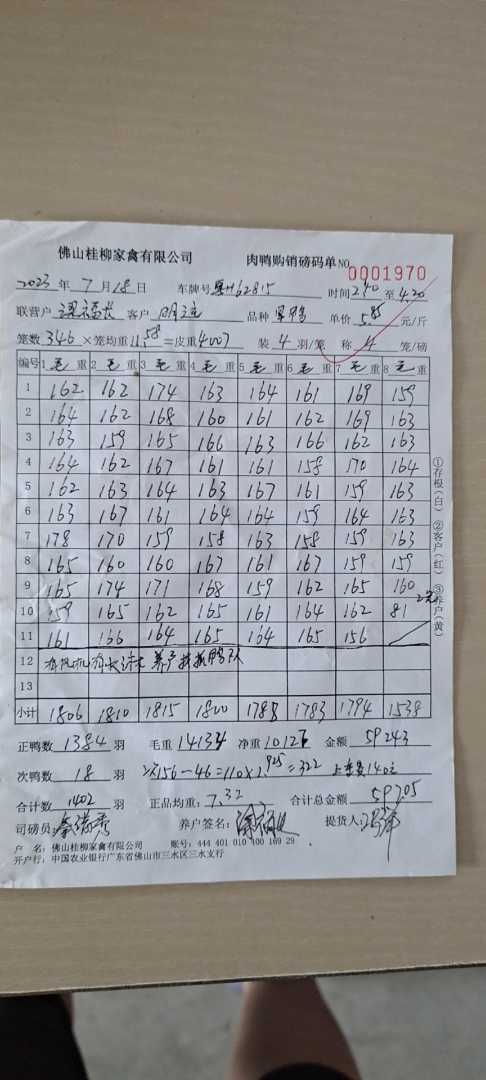 佛山桂柳家禽有限公司 肉鸭购销磅码单 NO 0001970
2023 年 7 月 18 日 车牌号 H62815 时间 2.40 至 4.20
联营户 客户 品种 单价 5.85 元/斤
笼数 346 ×笼均重 11.58 =皮重 4007 装 4 羽/笼 称 4 笼/磅
编号 1 毛 重 2 毛 重 3 毛 重 4 毛 重 5 毛 重 6 毛 重 7 毛 重 8 毛 重
1 162 162 174 163 164 161 169 159
2 164 162 168 160 161 162 169 163
3 163 159 165 166 163 166 162 163
4 164 162 167 161 161 158 170 164
5 162 163 164 163 167 161 159 163
6 163 167 161 164 164 159 164 163
7 178 170 159 158 163 158 159 163
8 165 160 160 167 161 167 159 159
9 165 174 171 168 159 162 165 160
10 159 165 162 165 161 164 162 81
11 161 166 164 165 164 165 156
12
13
小计 1806 1810 1815 1800 1788 1783 1794 1538
①存根(白) ②客户(红) ③养户(黄)
正鸭数 1384 羽 毛重 14134 净重 10127 金额 59243
次鸭数 18 羽 156-46=110×2.925=322 140
合计数 1402 羽 正品均重: 7.32 合计总金额 59705
司磅员: 养户签名: 提货人:
户 名: 佛山桂柳家禽有限公司 账号: 444 401 010 400 169 29
开户行: 中国农业银行广东省佛山市三水区三水支行